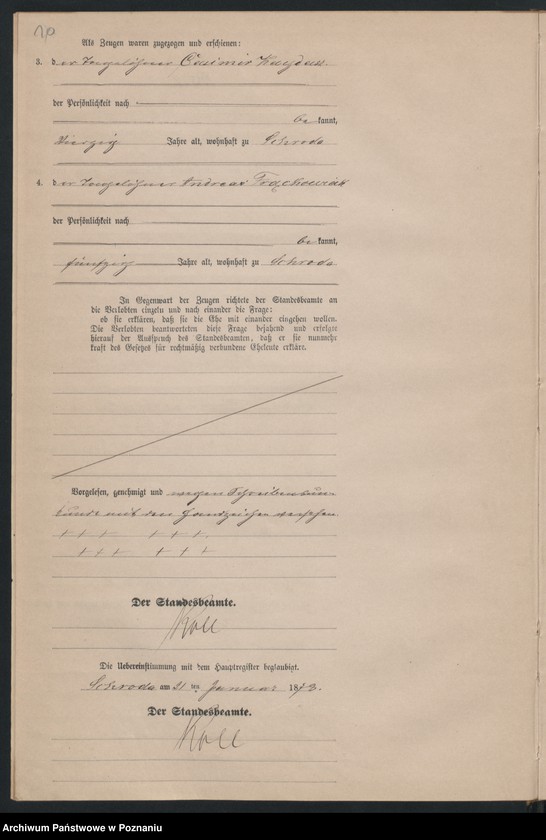 20
Als Zeugen waren zugezogen und erschienen:
3. der Tagelöhner Casimir
der Persönlichkeit nach
be kannt,
vierzig Jahre alt, wohnhaft zu Schroda
4. der Tagelöhner Andreas
der Persönlichkeit nach
be kannt,
fünfzig Jahre alt, wohnhaft zu Schroda
In Gegenwart der Zeugen richtete der Standesbeamte an
die Verlobten einzeln und nach einander die Frage:
ob sie erklären, daß sie die Ehe mit einander eingehen wollen.
Die Verlobten beantworteten diese Frage bejahend und erfolgte
hierauf der Ausspruch des Standesbeamten, daß er sie nunmehr
kraft des Gesetzes für rechtmäßig verbundene Eheleute erkläre.
Vorgelesen, genehmigt und wegen Schreibensun-
kunde mit den Handzeichen versehen.
+++ +++
+++ +++
Der Standesbeamte.
Roll
Die Uebereinstimmung mit dem Hauptregister beglaubigt.
Schroda am 21 ten Januar 18
Der Standesbeamte.
Roll
Archiwum Państwowe w Poznaniu